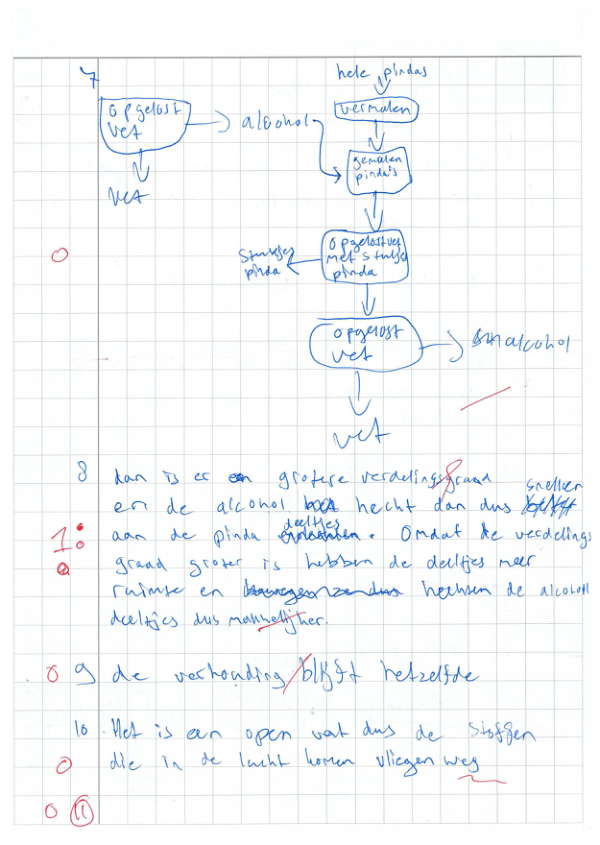 7
hele pindas
vermalen
opgelost
vet
alcohol
gemalen
pinda's
vet
opgelost vet
met stukje
pinda
stukjes
pinda
0
opgelost
vet
alcohol
vet
8 dan is er een grotere verdelingsgraad
sneller
en de alcohol hecht dan dus
deeltjes
1 aan de pinda . Omdat de verdelings
graad groter is hebben de deeltjes meer
ruimte en hechten de alcohol
deeltjes dus makkelijker.
0 9 de verhouding blijft hetzelfde
10. Het is een open vat dus de stoffen
0 die in de lucht komen vliegen weg
0 11